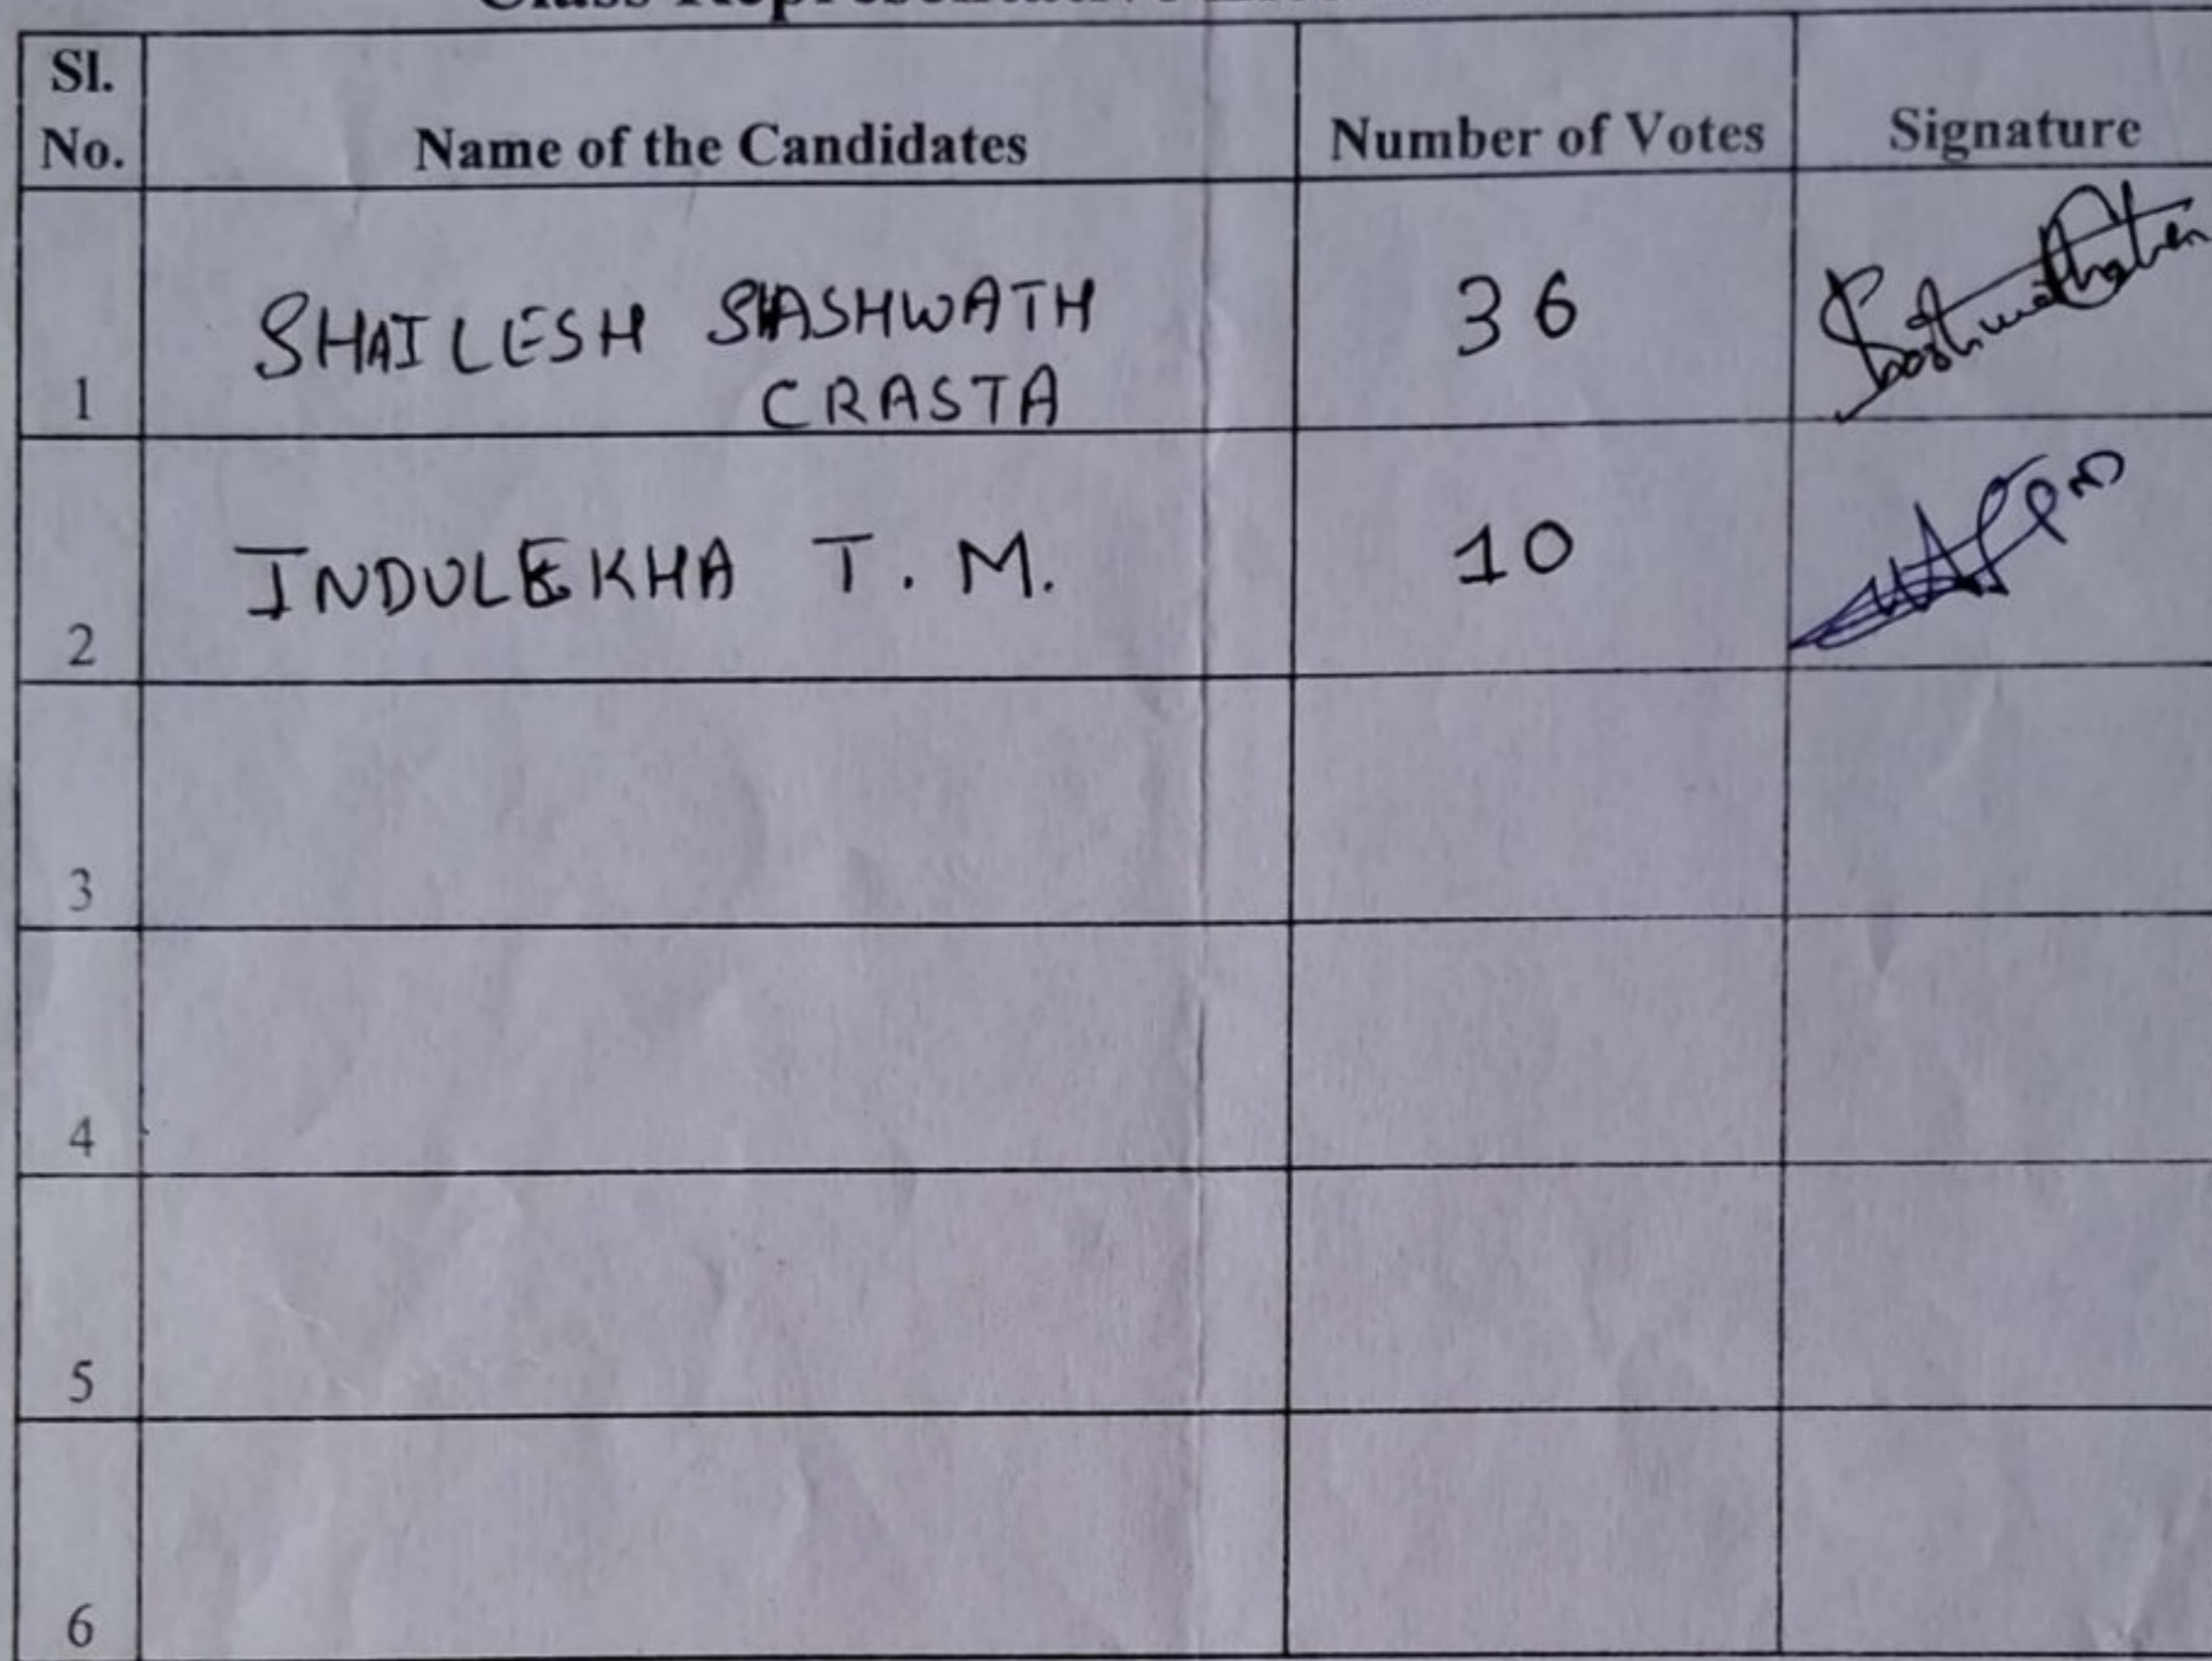 Class Representative
Sl.
No.
Name of the Candidates
Number of Votes
Signature
1
SHAILESH SHASHWATH
CRASTA
36
2
INDULEKHA T. M.
10
3
4
5
6